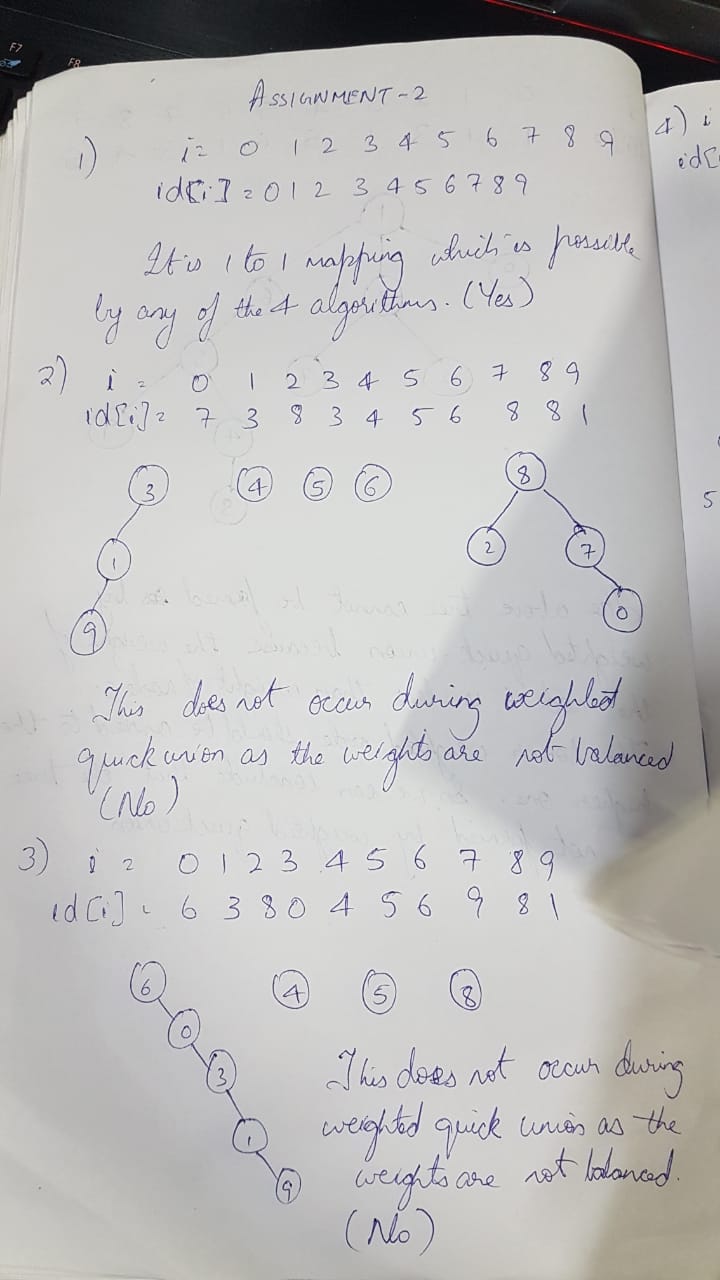 F7
F8
ASSIGNMENT-2
1) i= 0 1 2 3 4 5 6 7 8 9
id[i] = 0 1 2 3 4 5 6 7 8 9
It is 1 to 1 mapping which is possible
by any of the 4 algorithms. (Yes)
2) i = 0 1 2 3 4 5 6 7 8 9
id[i] = 7 3 8 3 4 5 6 8 8 1
3 4 5 6 8
1 2 7
9 0
This does not occur during weighted
quick union as the weights are not balanced
(No)
3) i = 0 1 2 3 4 5 6 7 8 9
id[i] = 6 3 8 0 4 5 6 9 8 1
6 4 5 8
0
3
1
9
This does not occur during
weighted quick union as the
weights are not balanced.
(No)
4) i
id[
5